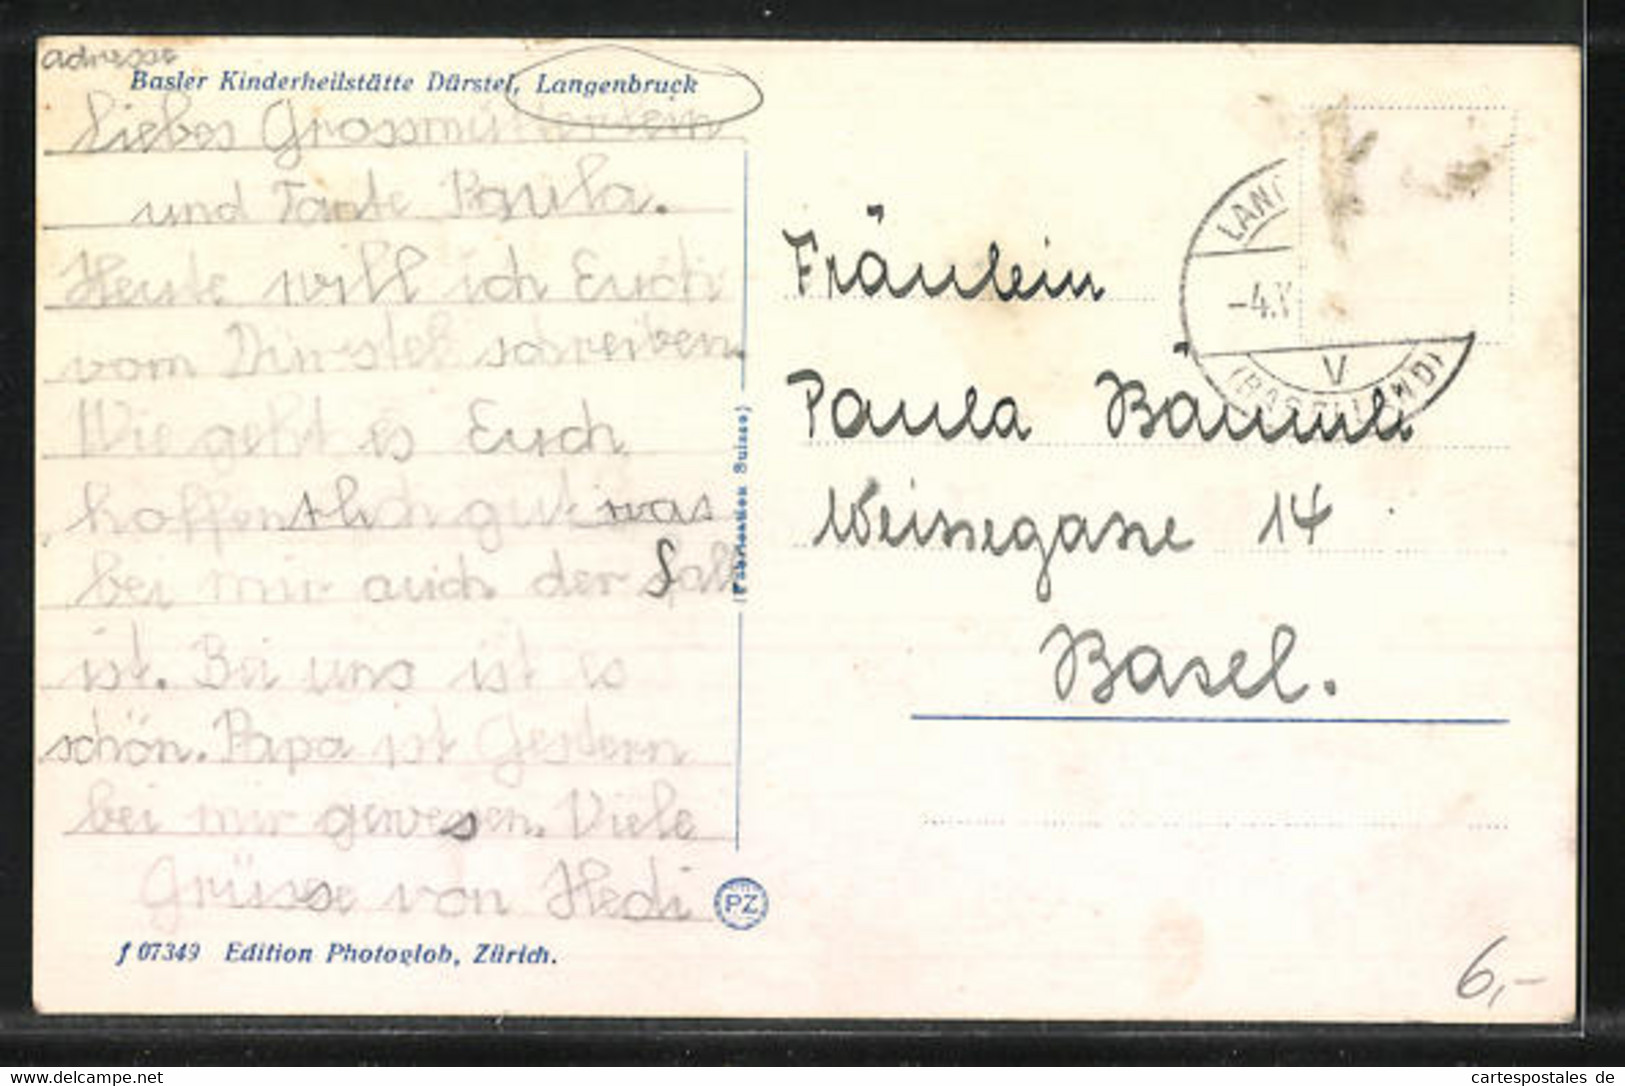 adresse
Basler Kinderheilstätte Dürstel, Langenbruck
Liebes Grossmütterlein
und Tante Paula.
Heute will ich Euch
vom Dürstel schreiben.
Wie geht es Euch
hoffentlich gut was
bei mir auch der fall
ist. Bei uns ist es
schön. Papa ist Gestern
bei mir gewesen. Viele
Grüsse von Hedi
f 07349 Edition Photoglob, Zürich.
PZ
(Fabrication Suisse)
LANG
-4.X
V
(BASELLAND)
Fräulein
Paula Bäumli
Weissegasse 14
Basel.
6,-
Ansichtskarten-Center Onlineshop
cartespostales de